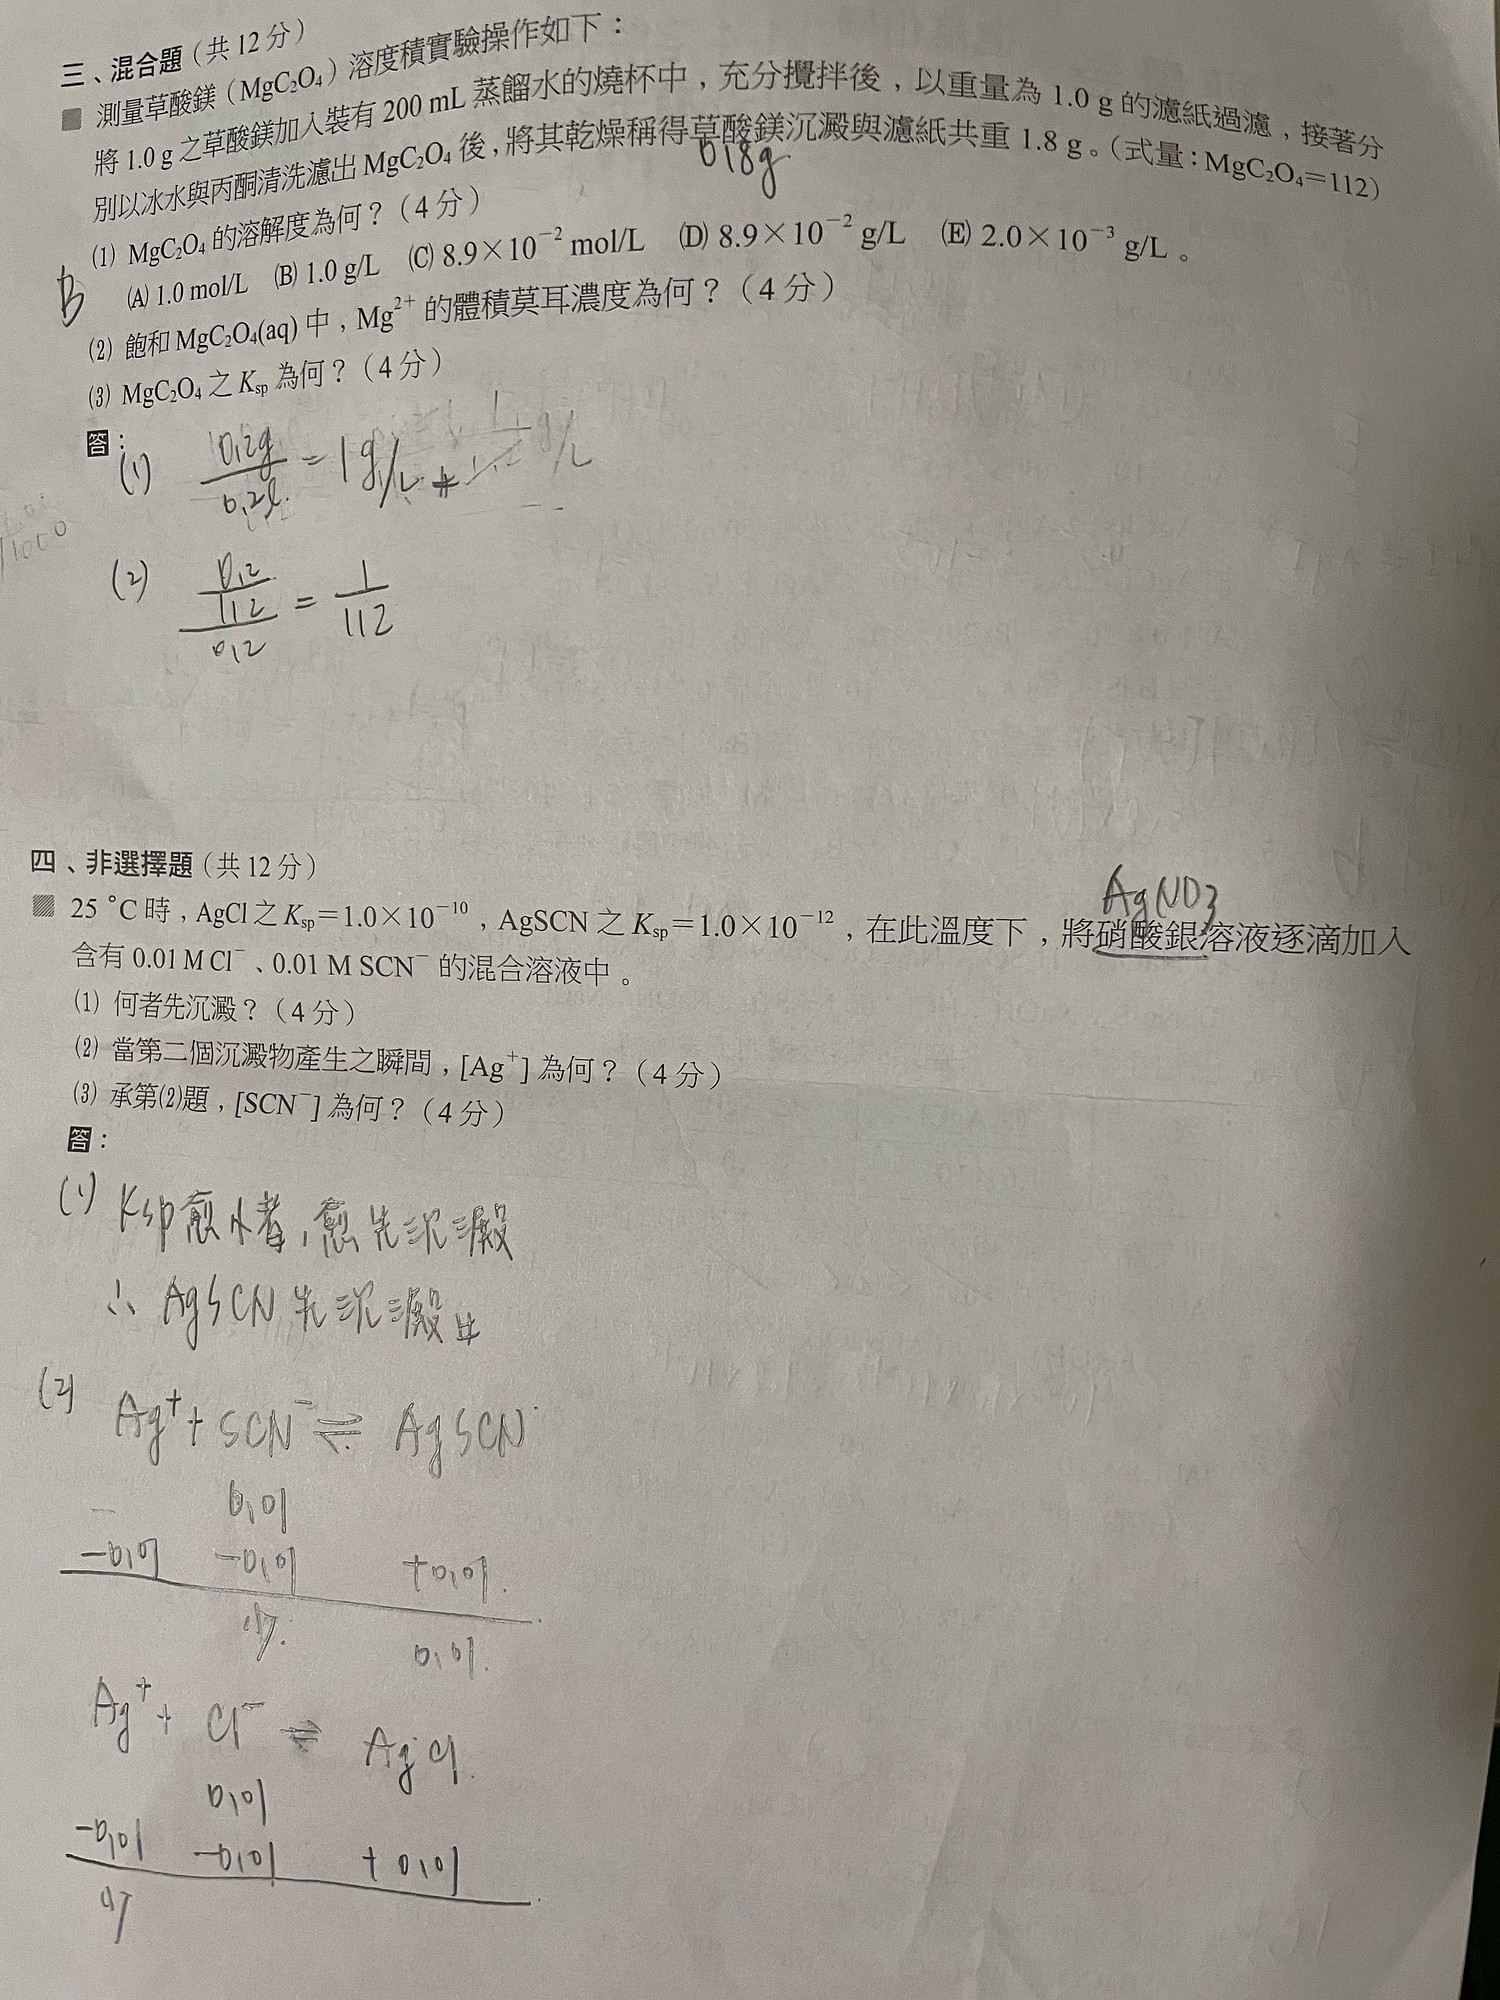 三、混合題（共12分）
測量草酸鎂（MgC₂O₄）溶度積實驗操作如下：
將1.0 g之草酸鎂加入裝有200 mL蒸餾水的燒杯中，充分攪拌後，以重量為1.0 g的濾紙過濾，接著分
別以冰水與丙酮清洗濾出MgC₂O₄後，將其乾燥稱得草酸鎂沉澱與濾紙共重1.8 g。（式量：MgC₂O₄＝112）
0.8g
(1) MgC₂O₄的溶解度為何？（4分）
B
(A) 1.0 mol/L (B) 1.0 g/L (C) 8.9×10⁻² mol/L (D) 8.9×10⁻² g/L (E) 2.0×10⁻³ g/L。
(2) 飽和MgC₂O₄(aq)中，Mg²⁺的體積莫耳濃度為何？（4分）
(3) MgC₂O₄之Ksp為何？（4分）
答：
(1) 0.2g / 0.2l = 1g/L #
(2) 0.2/112 / 0.2 = 1/112
四、非選擇題（共12分）
AgNO₃
25 °C時，AgCl之Ksp＝1.0×10⁻¹⁰，AgSCN之Ksp＝1.0×10⁻¹²，在此溫度下，將硝酸銀溶液逐滴加入
含有0.01 M Cl⁻、0.01 M SCN⁻的混合溶液中。
(1) 何者先沉澱？（4分）
(2) 當第二個沉澱物產生之瞬間，[Ag⁺]為何？（4分）
(3) 承第(2)題，[SCN⁻]為何？（4分）
答：
(1) Ksp愈小者,愈先沉澱
∴ AgSCN先沉澱#
(2) Ag⁺ + SCN⁻ ⇌ AgSCN
0.01
-0.01 -0.01 +0.01
0.01
Ag⁺ + Cl⁻ ⇌ AgCl
0.01
-0.01 -0.01 +0.01